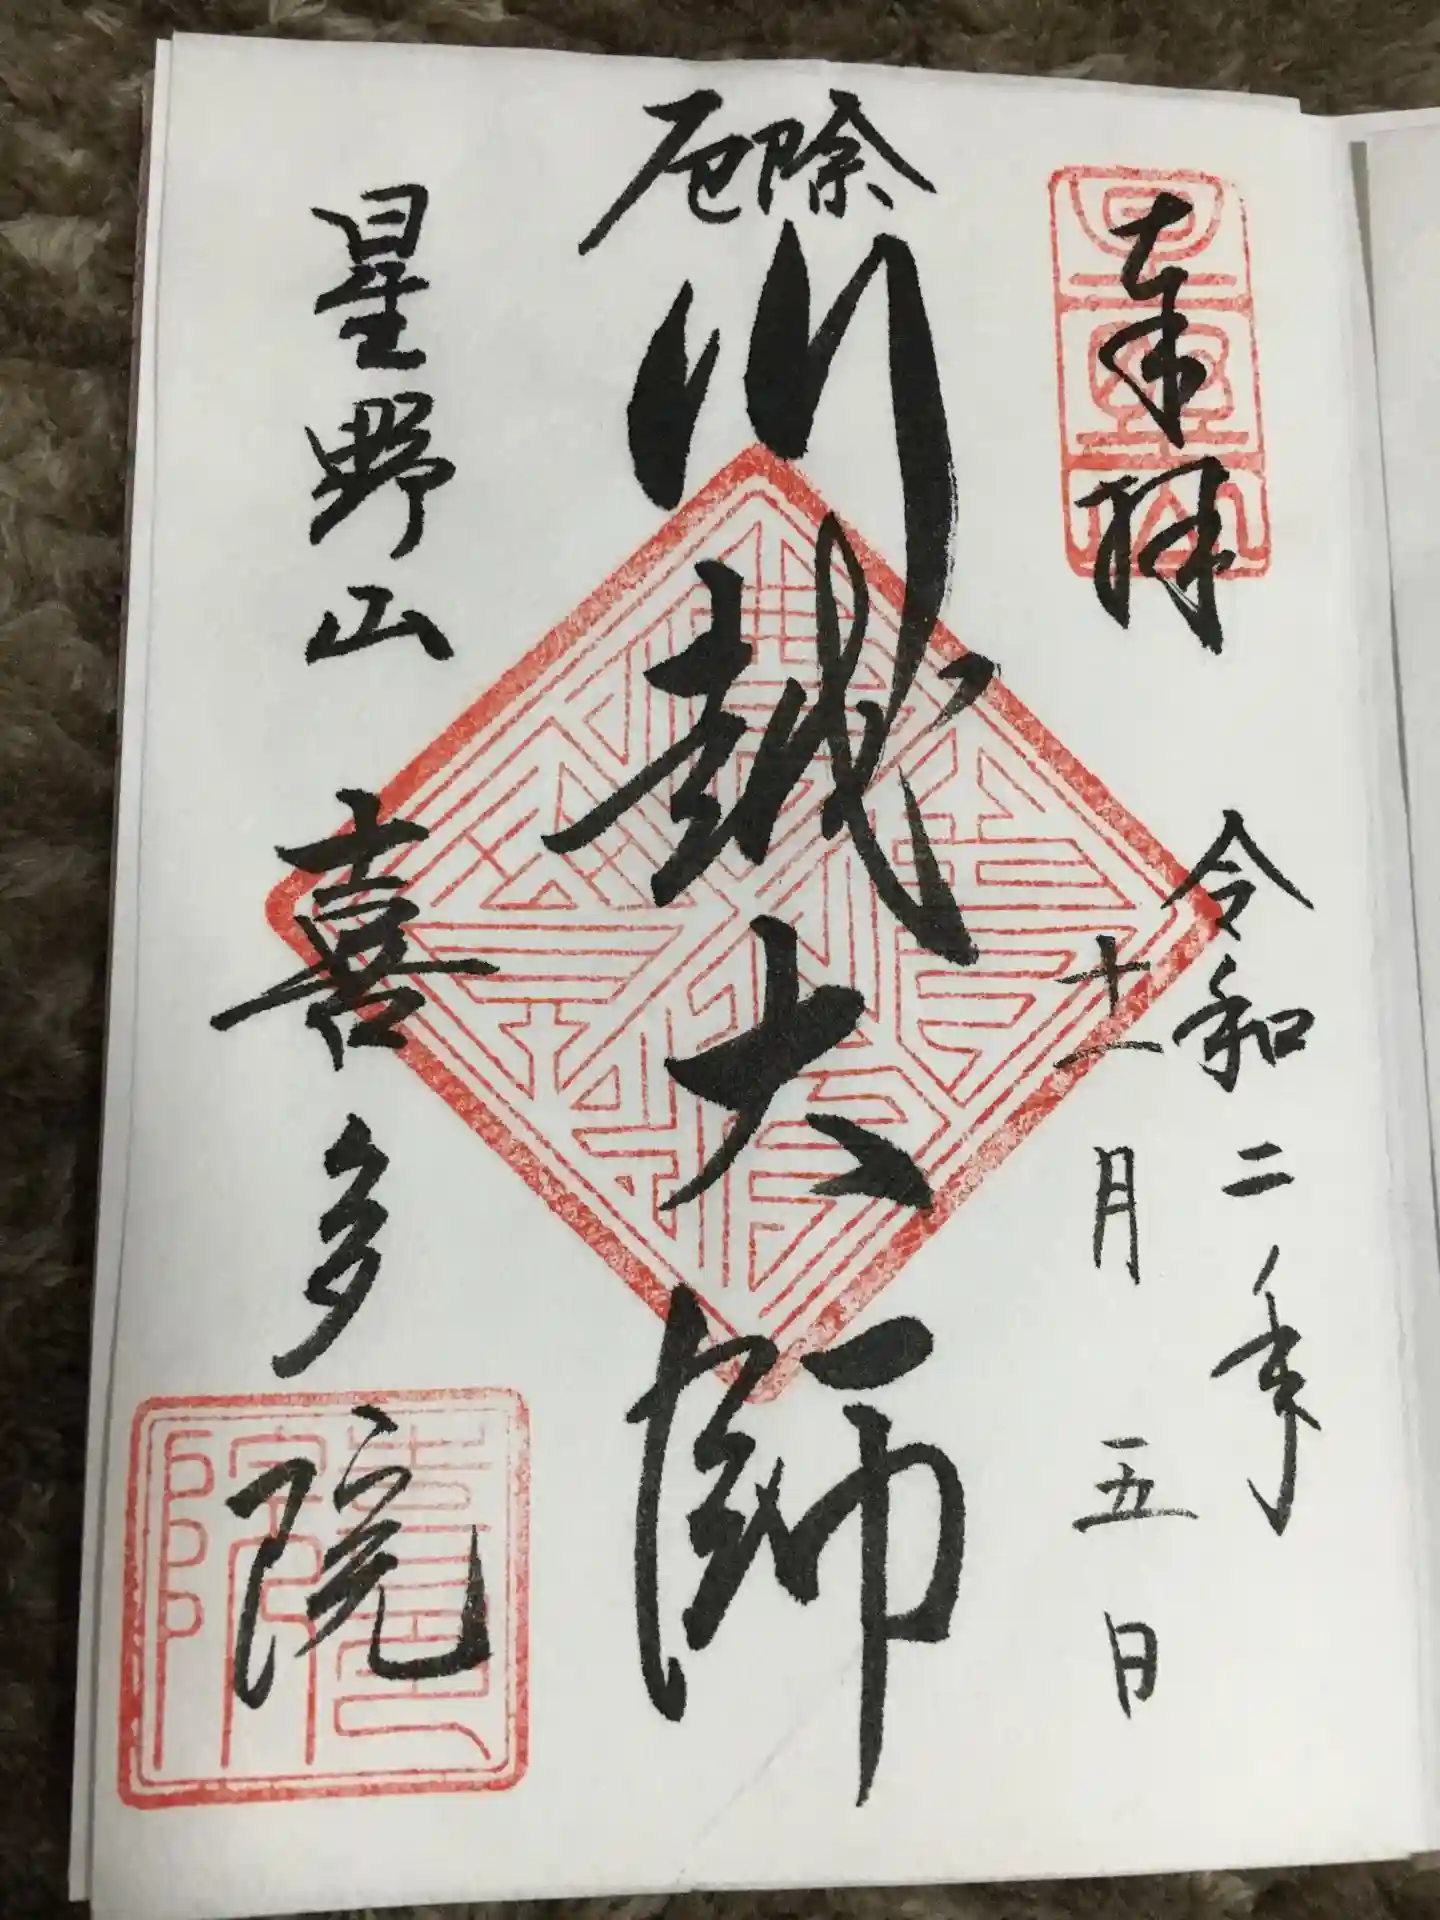 奉拝
令和二年
十一月五日
厄除
川越大師
星野山
喜多院